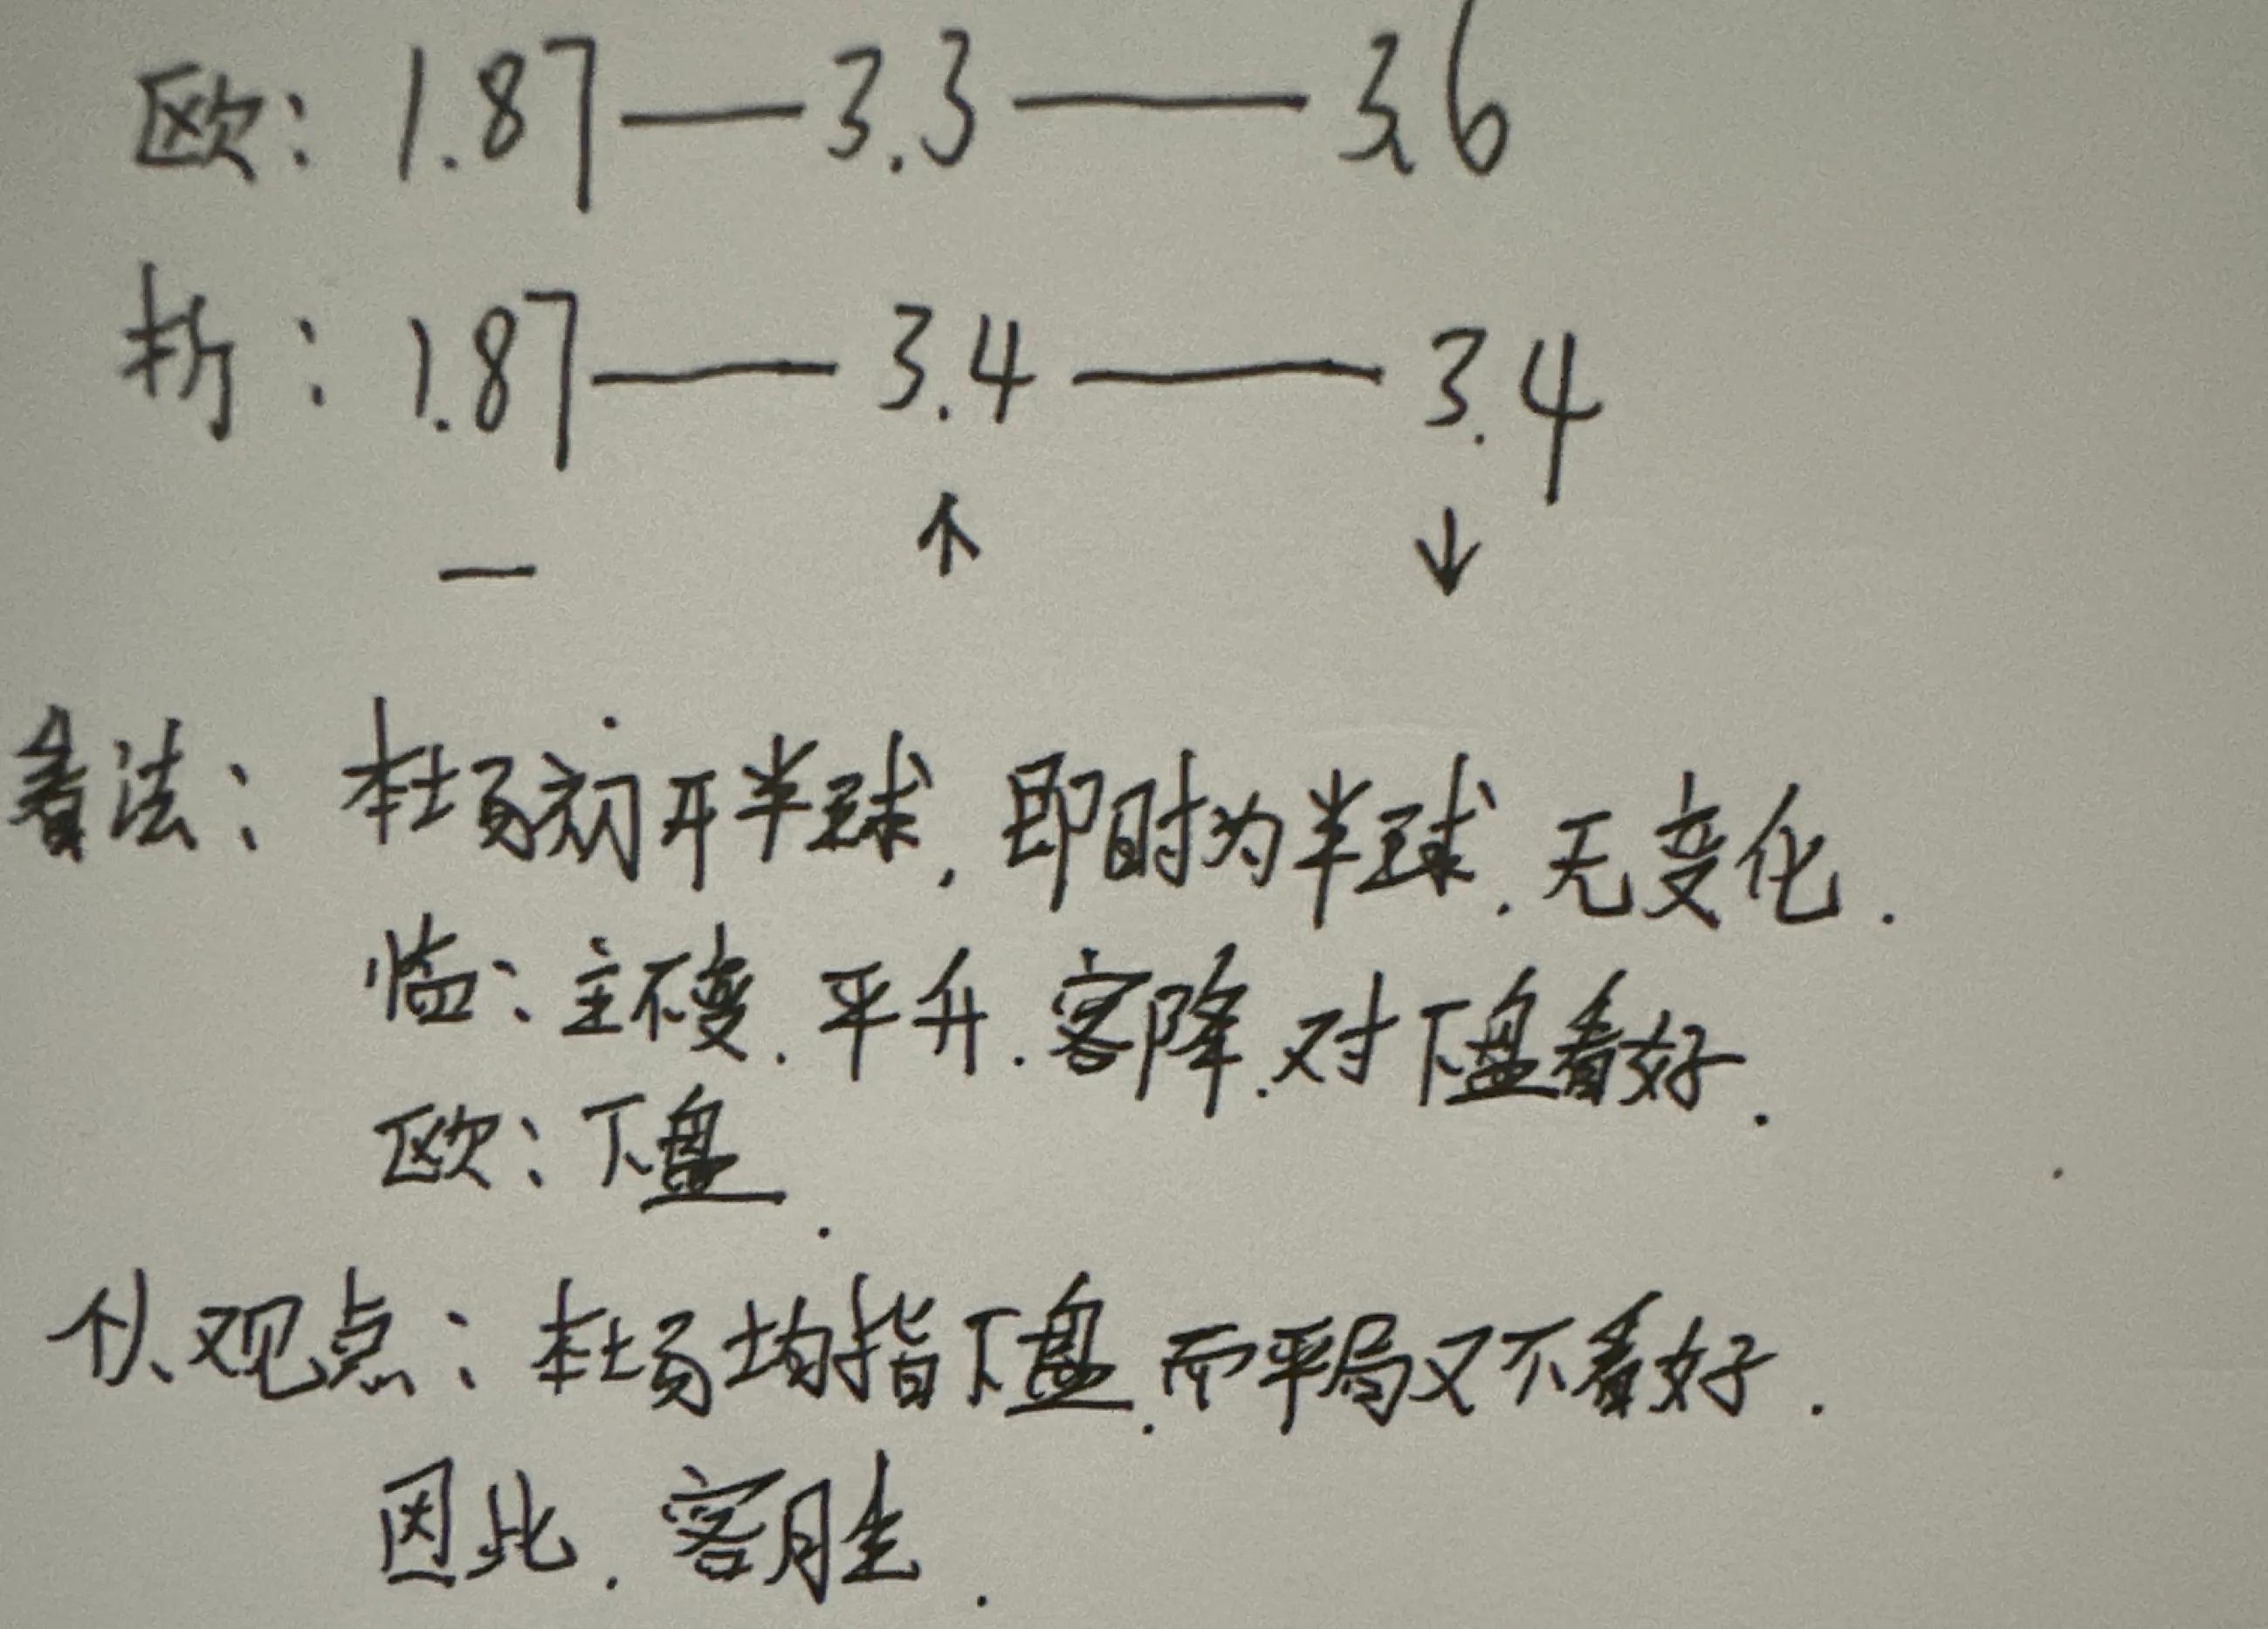 欧：1.87—3.3——3.6
折：1.87——3.4——3.4
— ↑ ↓
看法：本场初开半球，即时为半球．无变化．
临：主不变．平升．客降．对下盘看好．
欧：下盘．
个人观点：本场均指下盘．而平局又不看好．
因此．客胜．